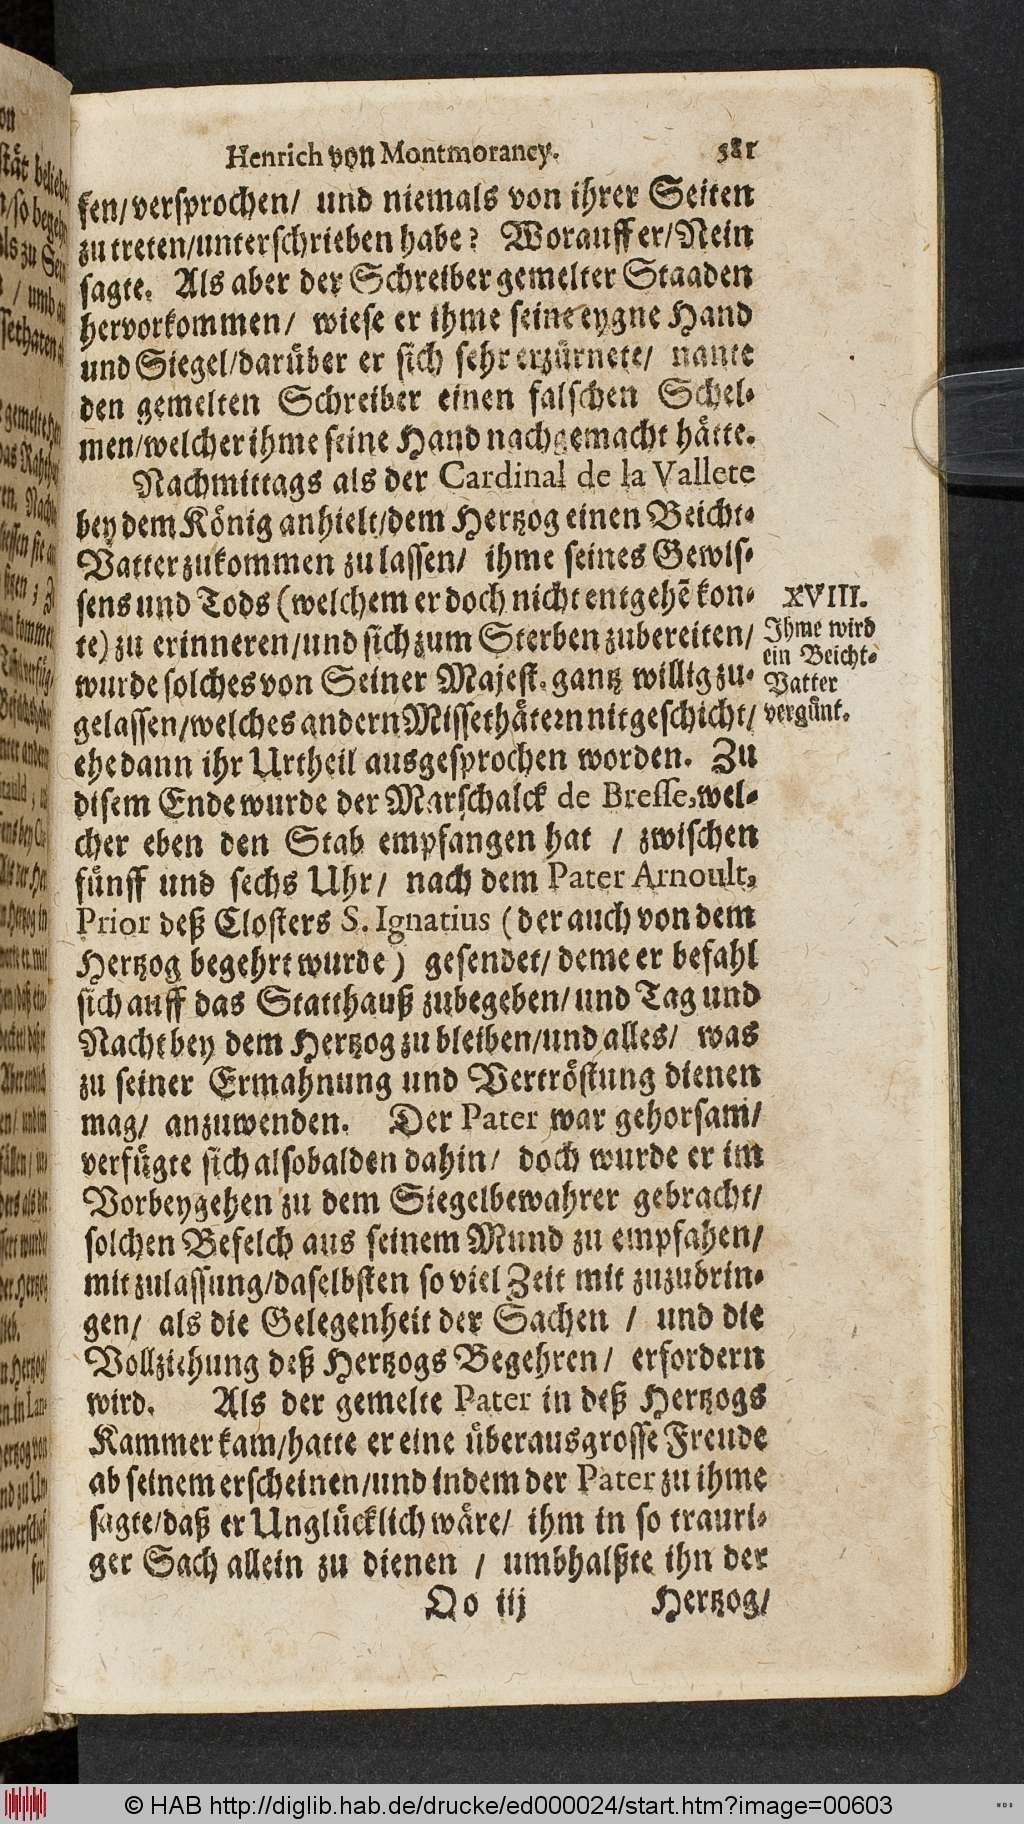 Henrich von Montmorancy. 381
ken/versprochen/ und niemals von ihrer Seiten
zu treten/unterschrieben habe? Worauff er/Nein
sagte. Als aber der Schreiber gemelter Staaden
hervorkommen/ wiese er ihme seine eygne Hand
und Siegel/darüber er sich sehr erzürnete/ nante
den gemelten Schreiber einen falschen Schel-
men/welcher ihme seine Hand nachgemacht hätte.
Nachmittags als der Cardinal de la Vallete
bey dem König anhielt/dem Hertzog einen Beicht-
Vatter zukommen zu lassen/ ihme seines Gewis-
sens und Tods (welchem er doch nicht entgehẽ kon-
te) zu erinneren/und sich zum Sterben zubereiten/
wurde solches von Seiner Majest. gantz willig zu-
gelassen/welches andern Missethätern nit geschicht/
ehe dann ihr Urtheil ausgesprochen worden. Zu
disem Ende wurde der Marschalck de Bresse, wel-
cher eben den Stab empfangen hat / zwischen
fünff und sechs Uhr/ nach dem Pater Arnoult,
Prior deß Closters S. Ignatius (der auch von dem
Hertzog begehrt wurde) gesendet/ deme er befahl
sich auff das Statthauß zubegeben/und Tag und
Nacht bey dem Hertzog zu bleiben/und alles/ was
zu seiner Ermahnung und Vertröstung dienen
mag/ anzuwenden. Der Pater war gehorsam/
verfügte sich alsobalden dahin/ doch wurde er im
Vorbeygehen zu dem Siegelbewahrer gebracht/
solchen Befelch aus seinem Mund zu empfahen/
mit zulassung/daselbsten so viel Zeit mit zuzubrin-
gen/ als die Gelegenheit der Sachen / und die
Vollziehung deß Hertzogs Begehren/ erfordern
wird. Als der gemelte Pater in deß Hertzogs
Kammer kam/hatte er eine überausgrosse Freude
ab seinem erscheinen/und indem der Pater zu ihme
sagte/daß er Unglücklich wäre/ ihm in so trauri-
ger Sach allein zu dienen / umbhalßte ihn der
Oo iij Hertzog/
XVIII.
Ihme wird
ein Beicht-
Vatter
vergünt.
© HAB http://diglib.hab.de/drucke/ed000024/start.htm?image=00603